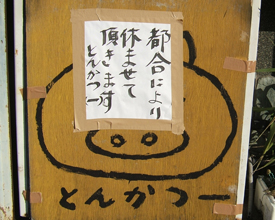 都合により
休ませて
頂きます
とんかつ一
とんかつ一